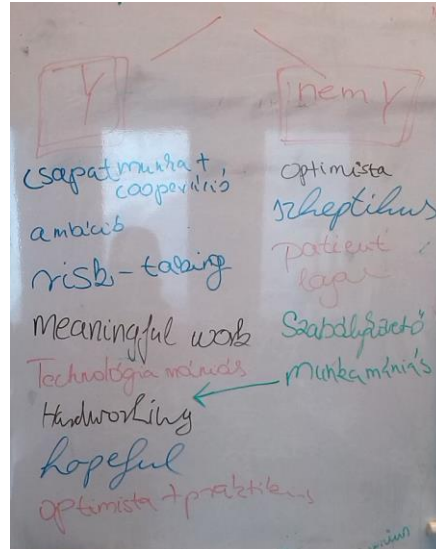 Y
csapatmunka +
cooperáció
ambíció
risk-taking
meaningful work
Technológia mániás
Hardworking
hopeful
optimista + praktikus
nem Y
optimista
szkeptikus
patient
loyal
Szabálykövető
munkamániás